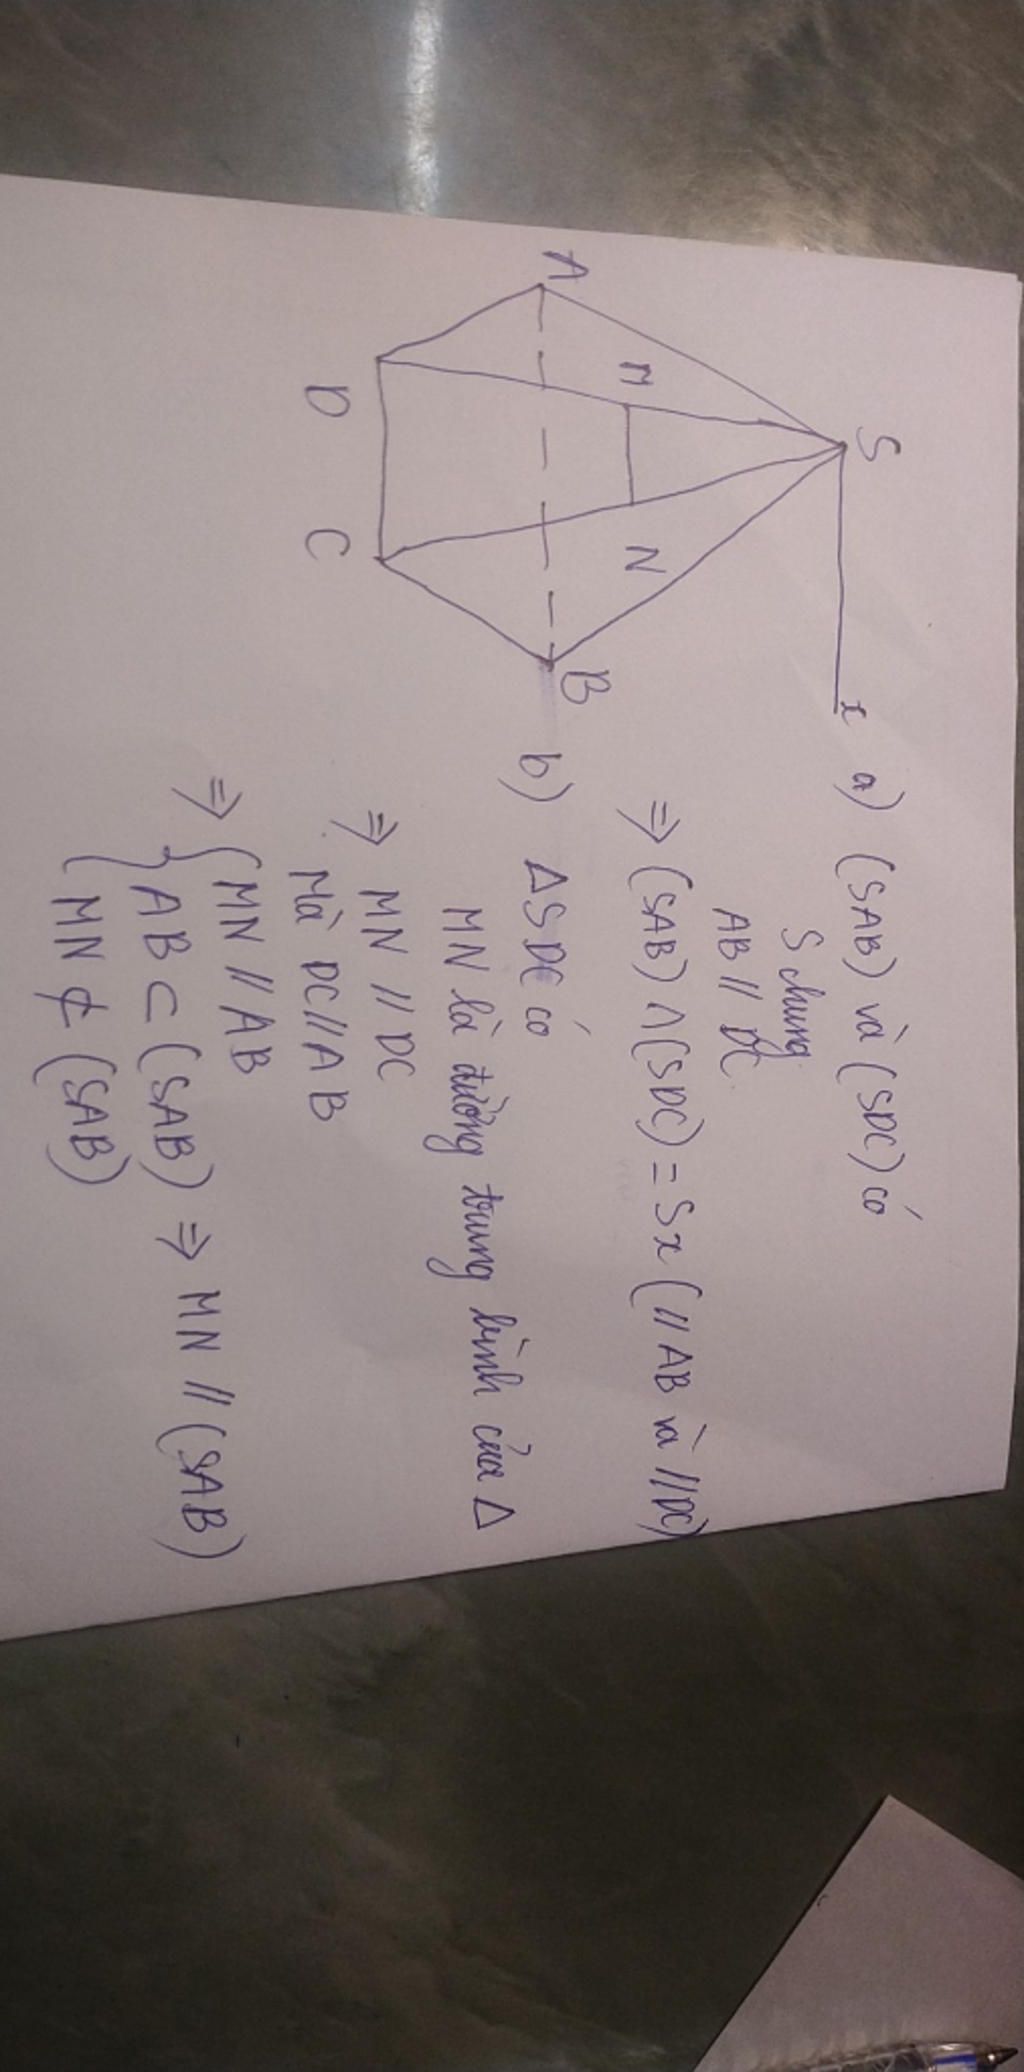 S
x
A
M
N
B
D
C
a) (SAB) và (SDC) có
S chung
AB // DC
⇒ (SAB) ∩ (SDC) = Sx ( // AB và // DC)
b) ΔSDC có
MN là đường trung bình của Δ
⇒ MN // DC
Mà DC // AB
⇒ { MN // AB
AB ⊂ (SAB) ⇒ MN // (SAB)
MN ⊄ (SAB)